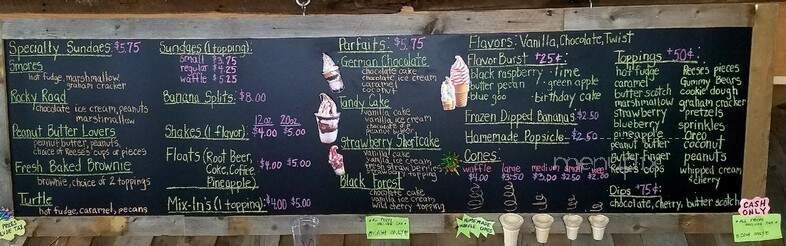 Specialty Sundaes $5.75
Smores
hot fudge, marshmallow
graham cracker
Rocky Road
chocolate ice cream, peanuts
marshmallow
Peanut Butter Lovers
peanut butter, peanuts,
choice of Reese's cups or pieces
Fresh Baked Brownie
brownie, choice of 2 toppings
Turtle
hot fudge, caramel, pecans
Sundaes (1 topping):
small $3.75
regular $4.25
waffle $5.25
Banana Splits: $8.00
12oz 20oz
Shakes (1 flavor): $4.00 $5.00
Floats (Root Beer,
Coke, Coffee
Pineapple) $4.00 $5.00
Mix-In's (1 topping) $4.00 $5.00
Parfaits: $5.75
German Chocolate
chocolate cake
chocolate ice cream
caramel
coconut
Tandy Cake
vanilla cake
vanilla ice cream
chocolate
peanut butter
Strawberry Shortcake
vanilla cake
vanilla ice cream
strawberries
Black Forest
chocolate cake
vanilla ice cream
wild cherry topping
Flavors: Vanilla, Chocolate, Twist
Flavor Burst +25¢:
black raspberry · lime
butter pecan / green apple
blue goo · birthday cake
Frozen Dipped Bananas $2.50
Homemade Popsicle $2.50
Cones:
waffle large medium small
$4.00 $3.50 $3.00 $2.50 $2.00
Toppings +50¢:
hot fudge Reeses pieces
caramel Gummy Bears
butterscotch cookie dough
marshmallow graham cracker
strawberry pretzels
blueberry sprinkles
pineapple Oreo
peanut butter coconut
finger peanuts
Reeses cups whipped cream
cherry
Dips +75¢:
chocolate, cherry, butter scotch
CASH
ONLY
HOMEMADE
WAFFLE CONES